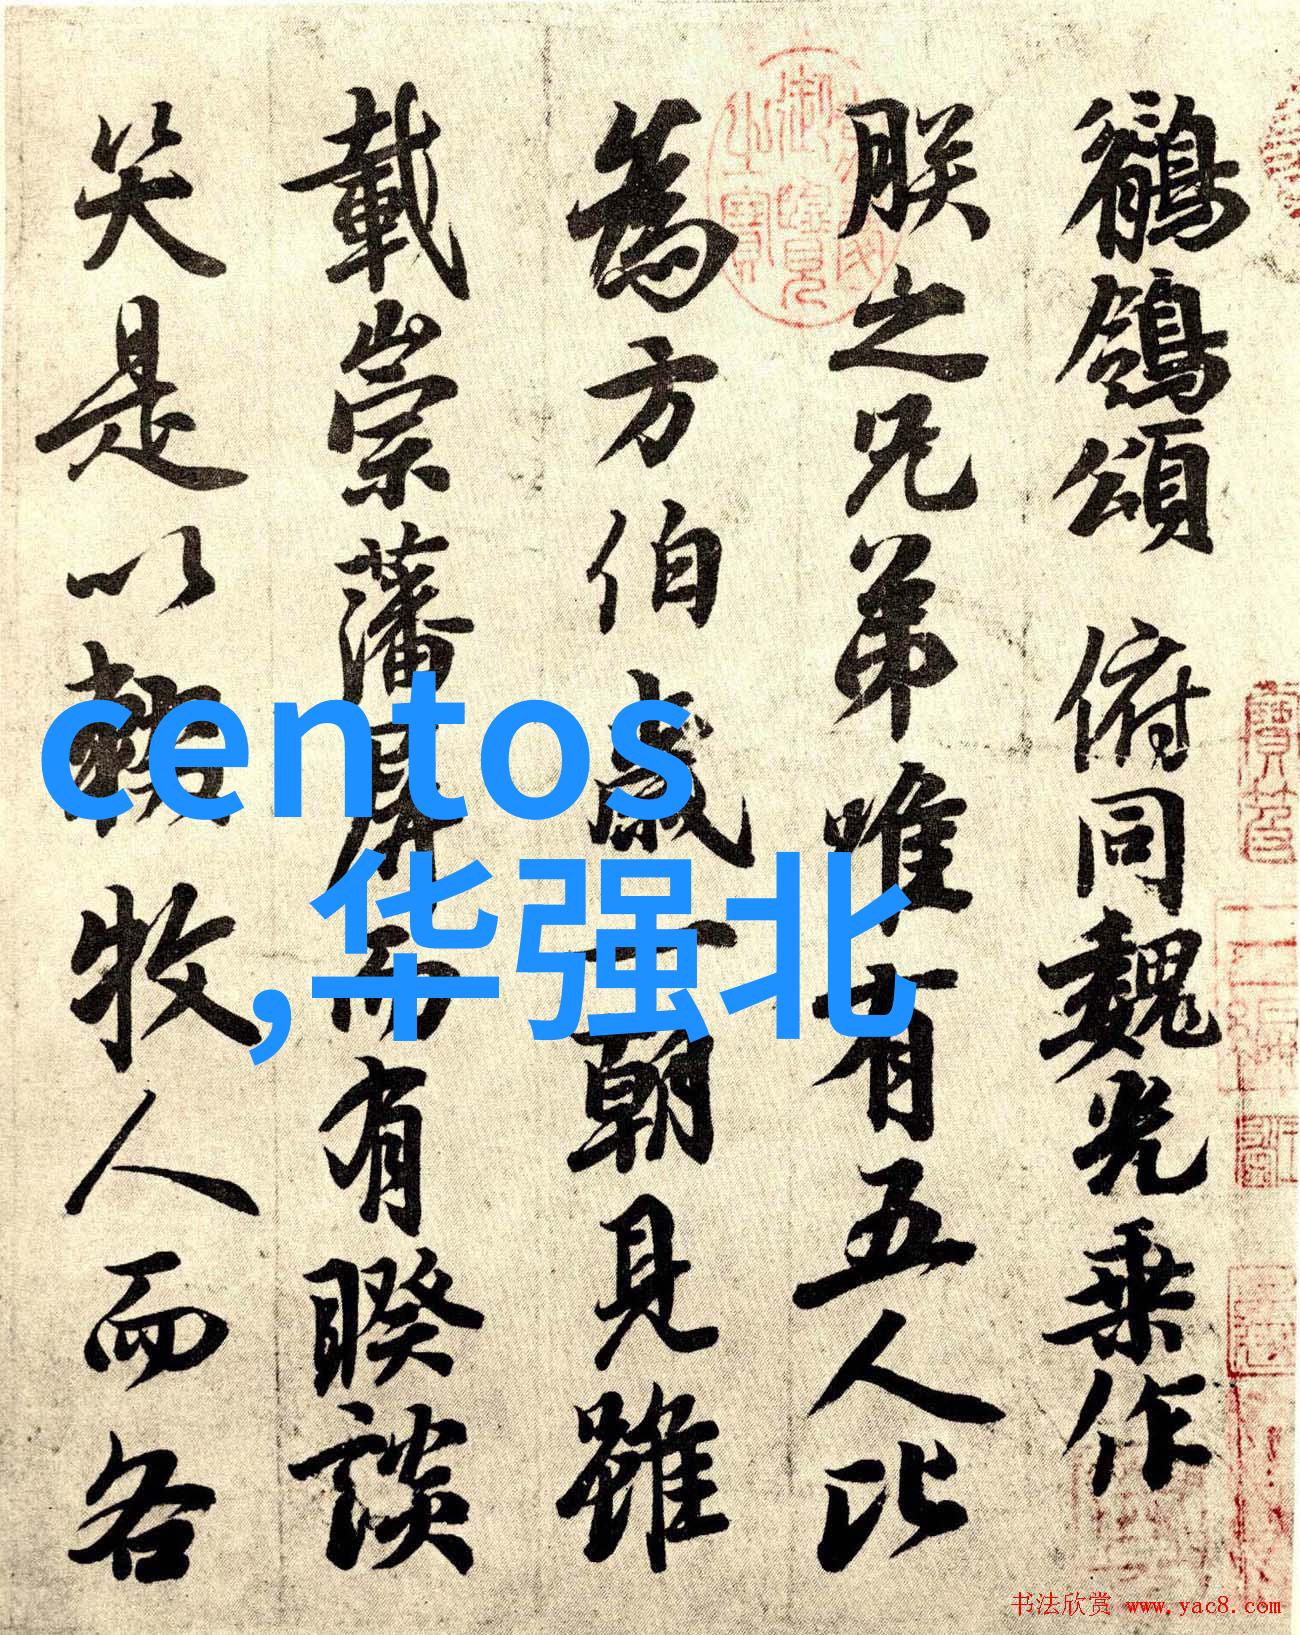 鶺鴒頌 俯同魏光乘作
朕之兄弟唯有五人比
為方伯歲一朝見雖
載崇藩屏而有睽談
笑是以輟牧人而各
centos
,华强北
书法欣赏 www.yac8.com